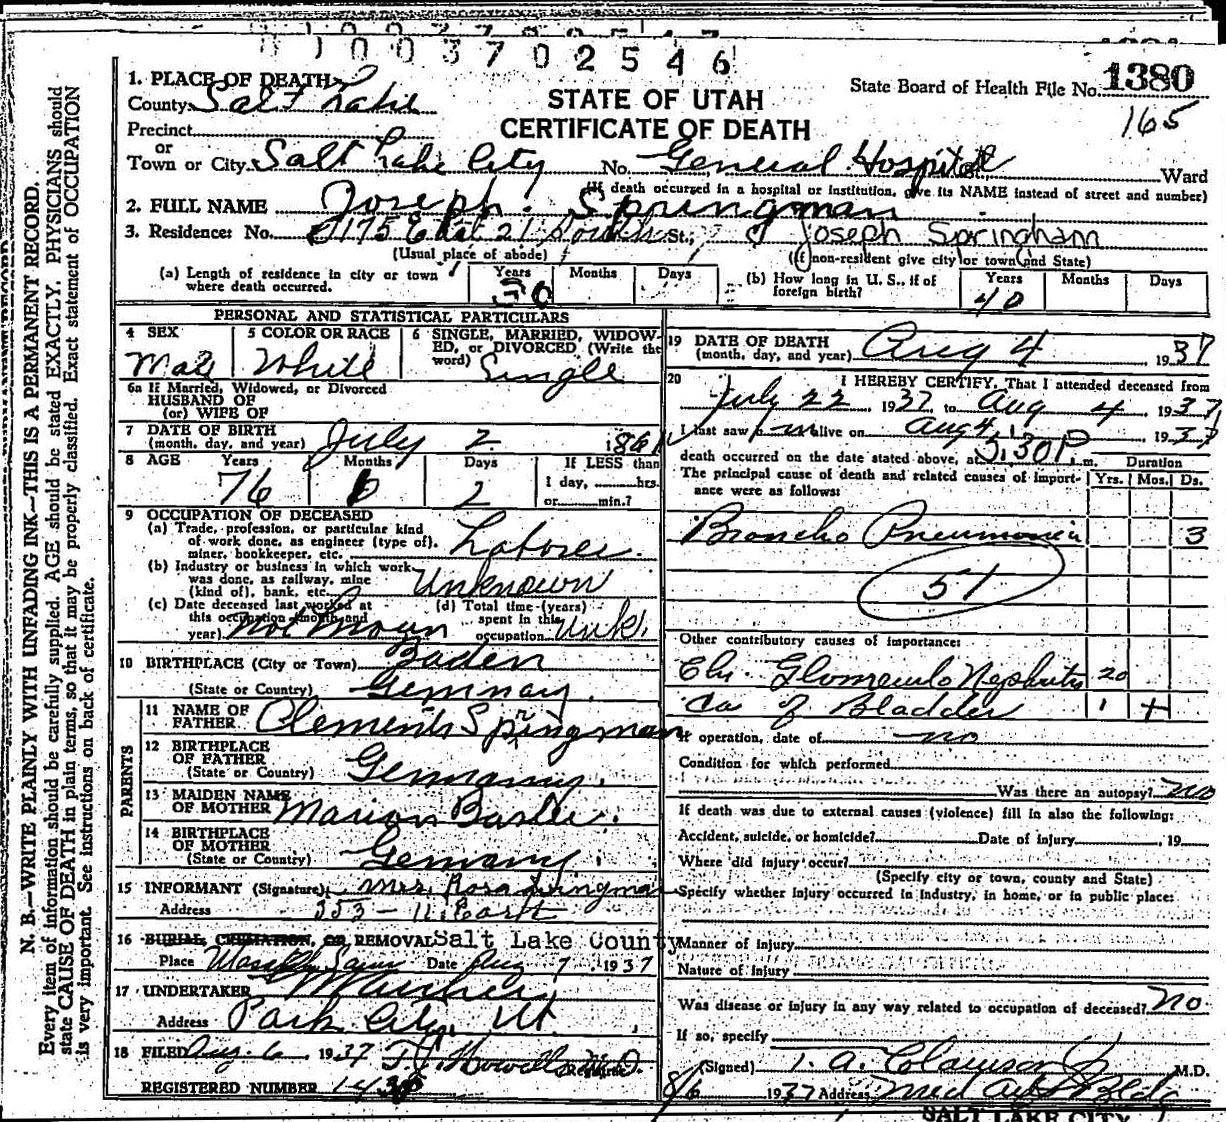 0 1 0 0 3 7 0 2 5 4 6
State Board of Health File No. 1380
165
STATE OF UTAH
CERTIFICATE OF DEATH
1. PLACE OF DEATH
County Salt Lake
Precinct
or
Town or City Salt Lake City No. General Hospital Ward
(If death occurred in a hospital or institution, give its NAME instead of street and number)
2. FULL NAME Joseph Springman
3. Residence: No. 1175 East 21 South St., Joseph Springham
(Usual place of abode) (If non-resident give city or town and State)
(a) Length of residence in city or town where death occurred. Years 30 Months Days
(b) How long in U. S., if of foreign birth? Years 40 Months Days
PERSONAL AND STATISTICAL PARTICULARS
4 SEX Male
5 COLOR OR RACE White
6 SINGLE, MARRIED, WIDOWED, or DIVORCED, (Write the word) Single
6a If Married, Widowed, or Divorced
HUSBAND OF
(or) WIFE OF
7 DATE OF BIRTH
(month, day, and year) July 2 1861
8 AGE Years 76 Months Days 2 If LESS than
1 day, hrs.
or min.?
9 OCCUPATION OF DECEASED
(a) Trade, profession, or particular kind
of work done, as engineer (type of),
miner, bookkeeper, etc. Laborer
(b) Industry or business in which work
was done, as railway, mine
(kind of), bank, etc. Unknown
(c) Date deceased last worked at
this occupation (month and
year) not known
(d) Total time (years)
spent in this
occupation Unk.
10 BIRTHPLACE (City or Town) Baden
(State or Country) Gemnay.
11 NAME OF
FATHER Clements Springman
12 BIRTHPLACE
OF FATHER
(State or Country) Germany.
PARENTS
13 MAIDEN NAME
OF MOTHER Marion
14 BIRTHPLACE
OF MOTHER
(State or Country) Gemany.
15 INFORMANT (Signature) Mrs. Rosa
Address 353 - 11 East
16 BURIAL, CREMATION, OR REMOVAL Salt Lake County
Place Date Aug 7, 1937
17 UNDERTAKER
Address Park City, Ut.
18 FILED Aug. 6 1937
REGISTERED NUMBER
19 DATE OF DEATH
(month, day, and year) Aug 4 1937
20 I HEREBY CERTIFY, That I attended deceased from
July 22, 1937, to Aug 4 1937
I last saw him alive on Aug 4, 1937
death occurred on the date stated above, at 5:30 P.m. Duration
The principal cause of death and related causes of importance were as follows: Yrs. Mos. Ds.
Broncho Pneumonia 3
51
Other contributory causes of importance:
Chr. Glomerulo Nephritis 20
Ca of Bladder 1 +
If operation, date of no
Condition for which performed
Was there an autopsy? no
If death was due to external causes (violence) fill in also the following:
Accident, suicide, or homicide? Date of injury , 19
Where did injury occur?
(Specify city or town, county and State)
Specify whether injury occurred in industry, in home, or in public place:
Manner of injury
Nature of injury
Was disease or injury in any way related to occupation of deceased? no.
If so, specify
(Signed) T. A. Clawson Jr M.D.
8/6 1937 Address Med Arts Bldg
SALT LAKE CITY
N. B.—WRITE PLAINLY WITH UNFADING INK—THIS IS A PERMANENT RECORD.
Every item of information should be carefully supplied. AGE should be stated EXACTLY. PHYSICIANS should
state CAUSE OF DEATH in plain terms, so that it may be properly classified. Exact statement of OCCUPATION
is very important. See instructions on back of certificate.